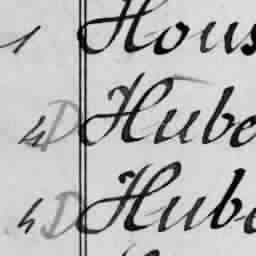 1 Hous
4 D Hube
4 D Hube